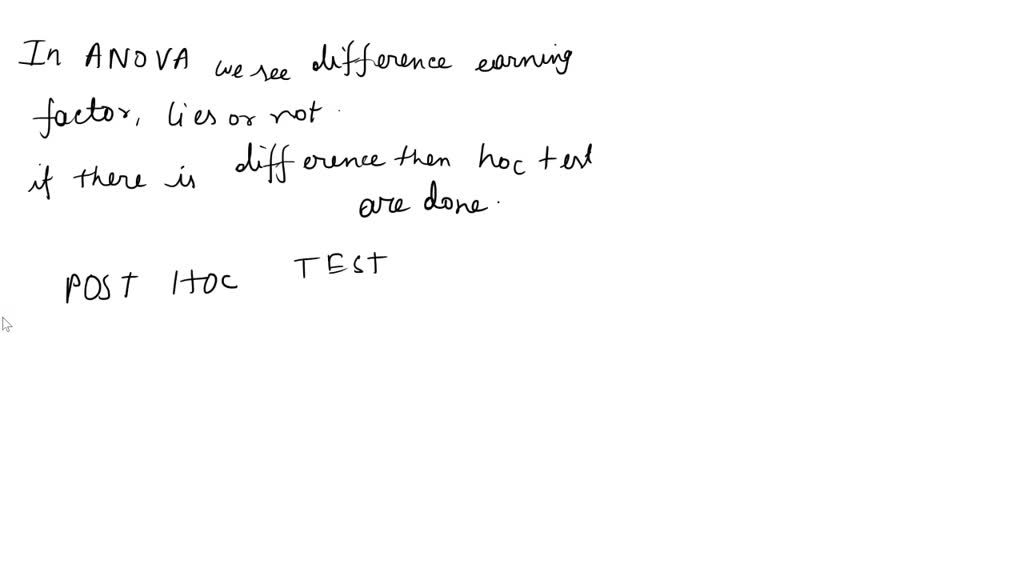 In ANOVA we see difference earning
factor, lies or not.
if there is difference then hoc test
are done.
POST HOC TEST